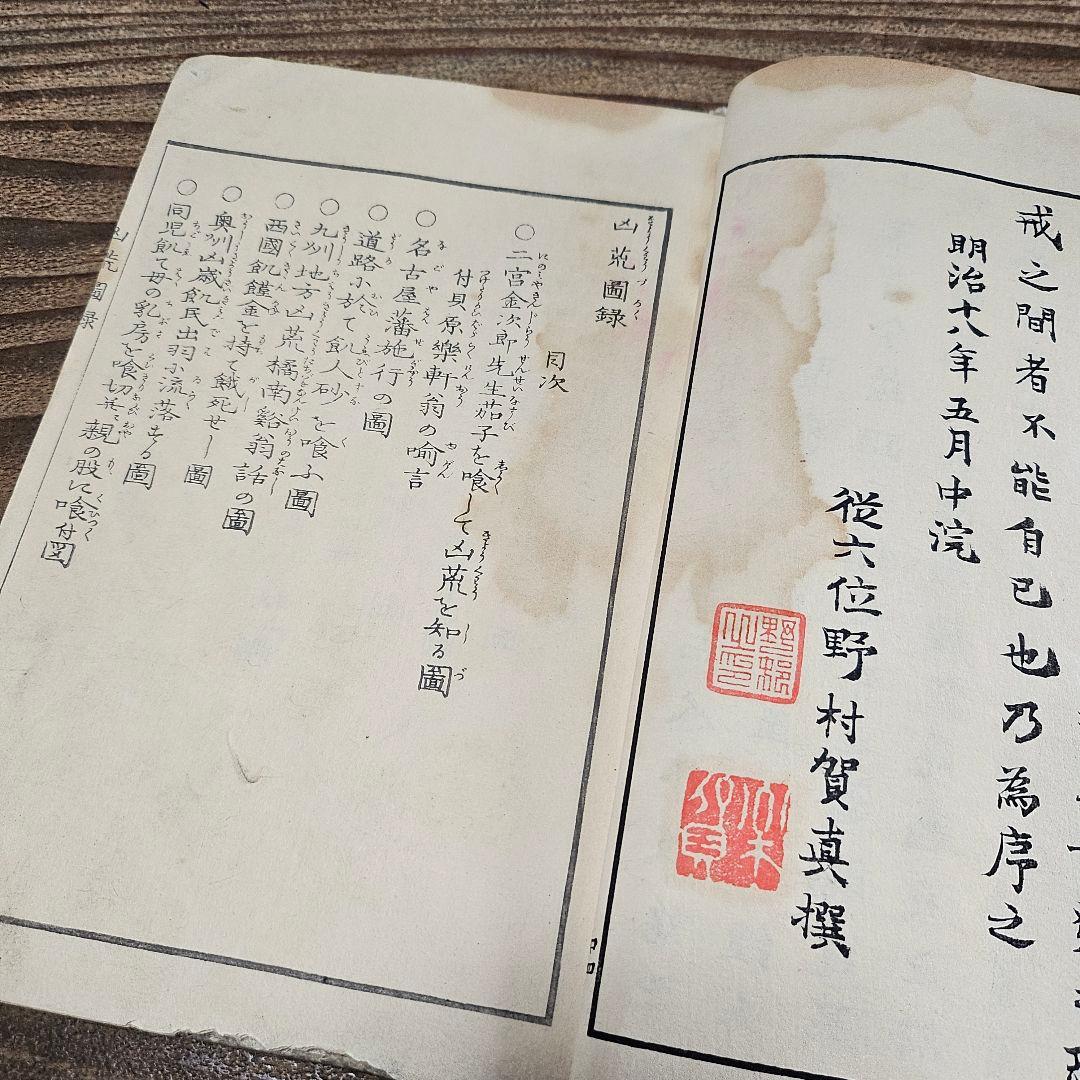 戒之間者不能自已也乃為序之
明治十八年五月中浣
従六位野村賀真撰
凶荒圖録
目次
○二宮金次郎先生茄子を喰して凶荒を知る圖
付貝原樂軒翁の喻言
○名古屋藩施行の圖
○道路に於て飢人砂を喰ふ圖
○九州地方凶荒橘南谿翁話の圖
○西國飢饉金を持て餓死せし圖
○奥州凶歳飢民出羽に流落する圖
○同児飢て母の乳房を喰切並親の股に喰付図
凶荒圖録